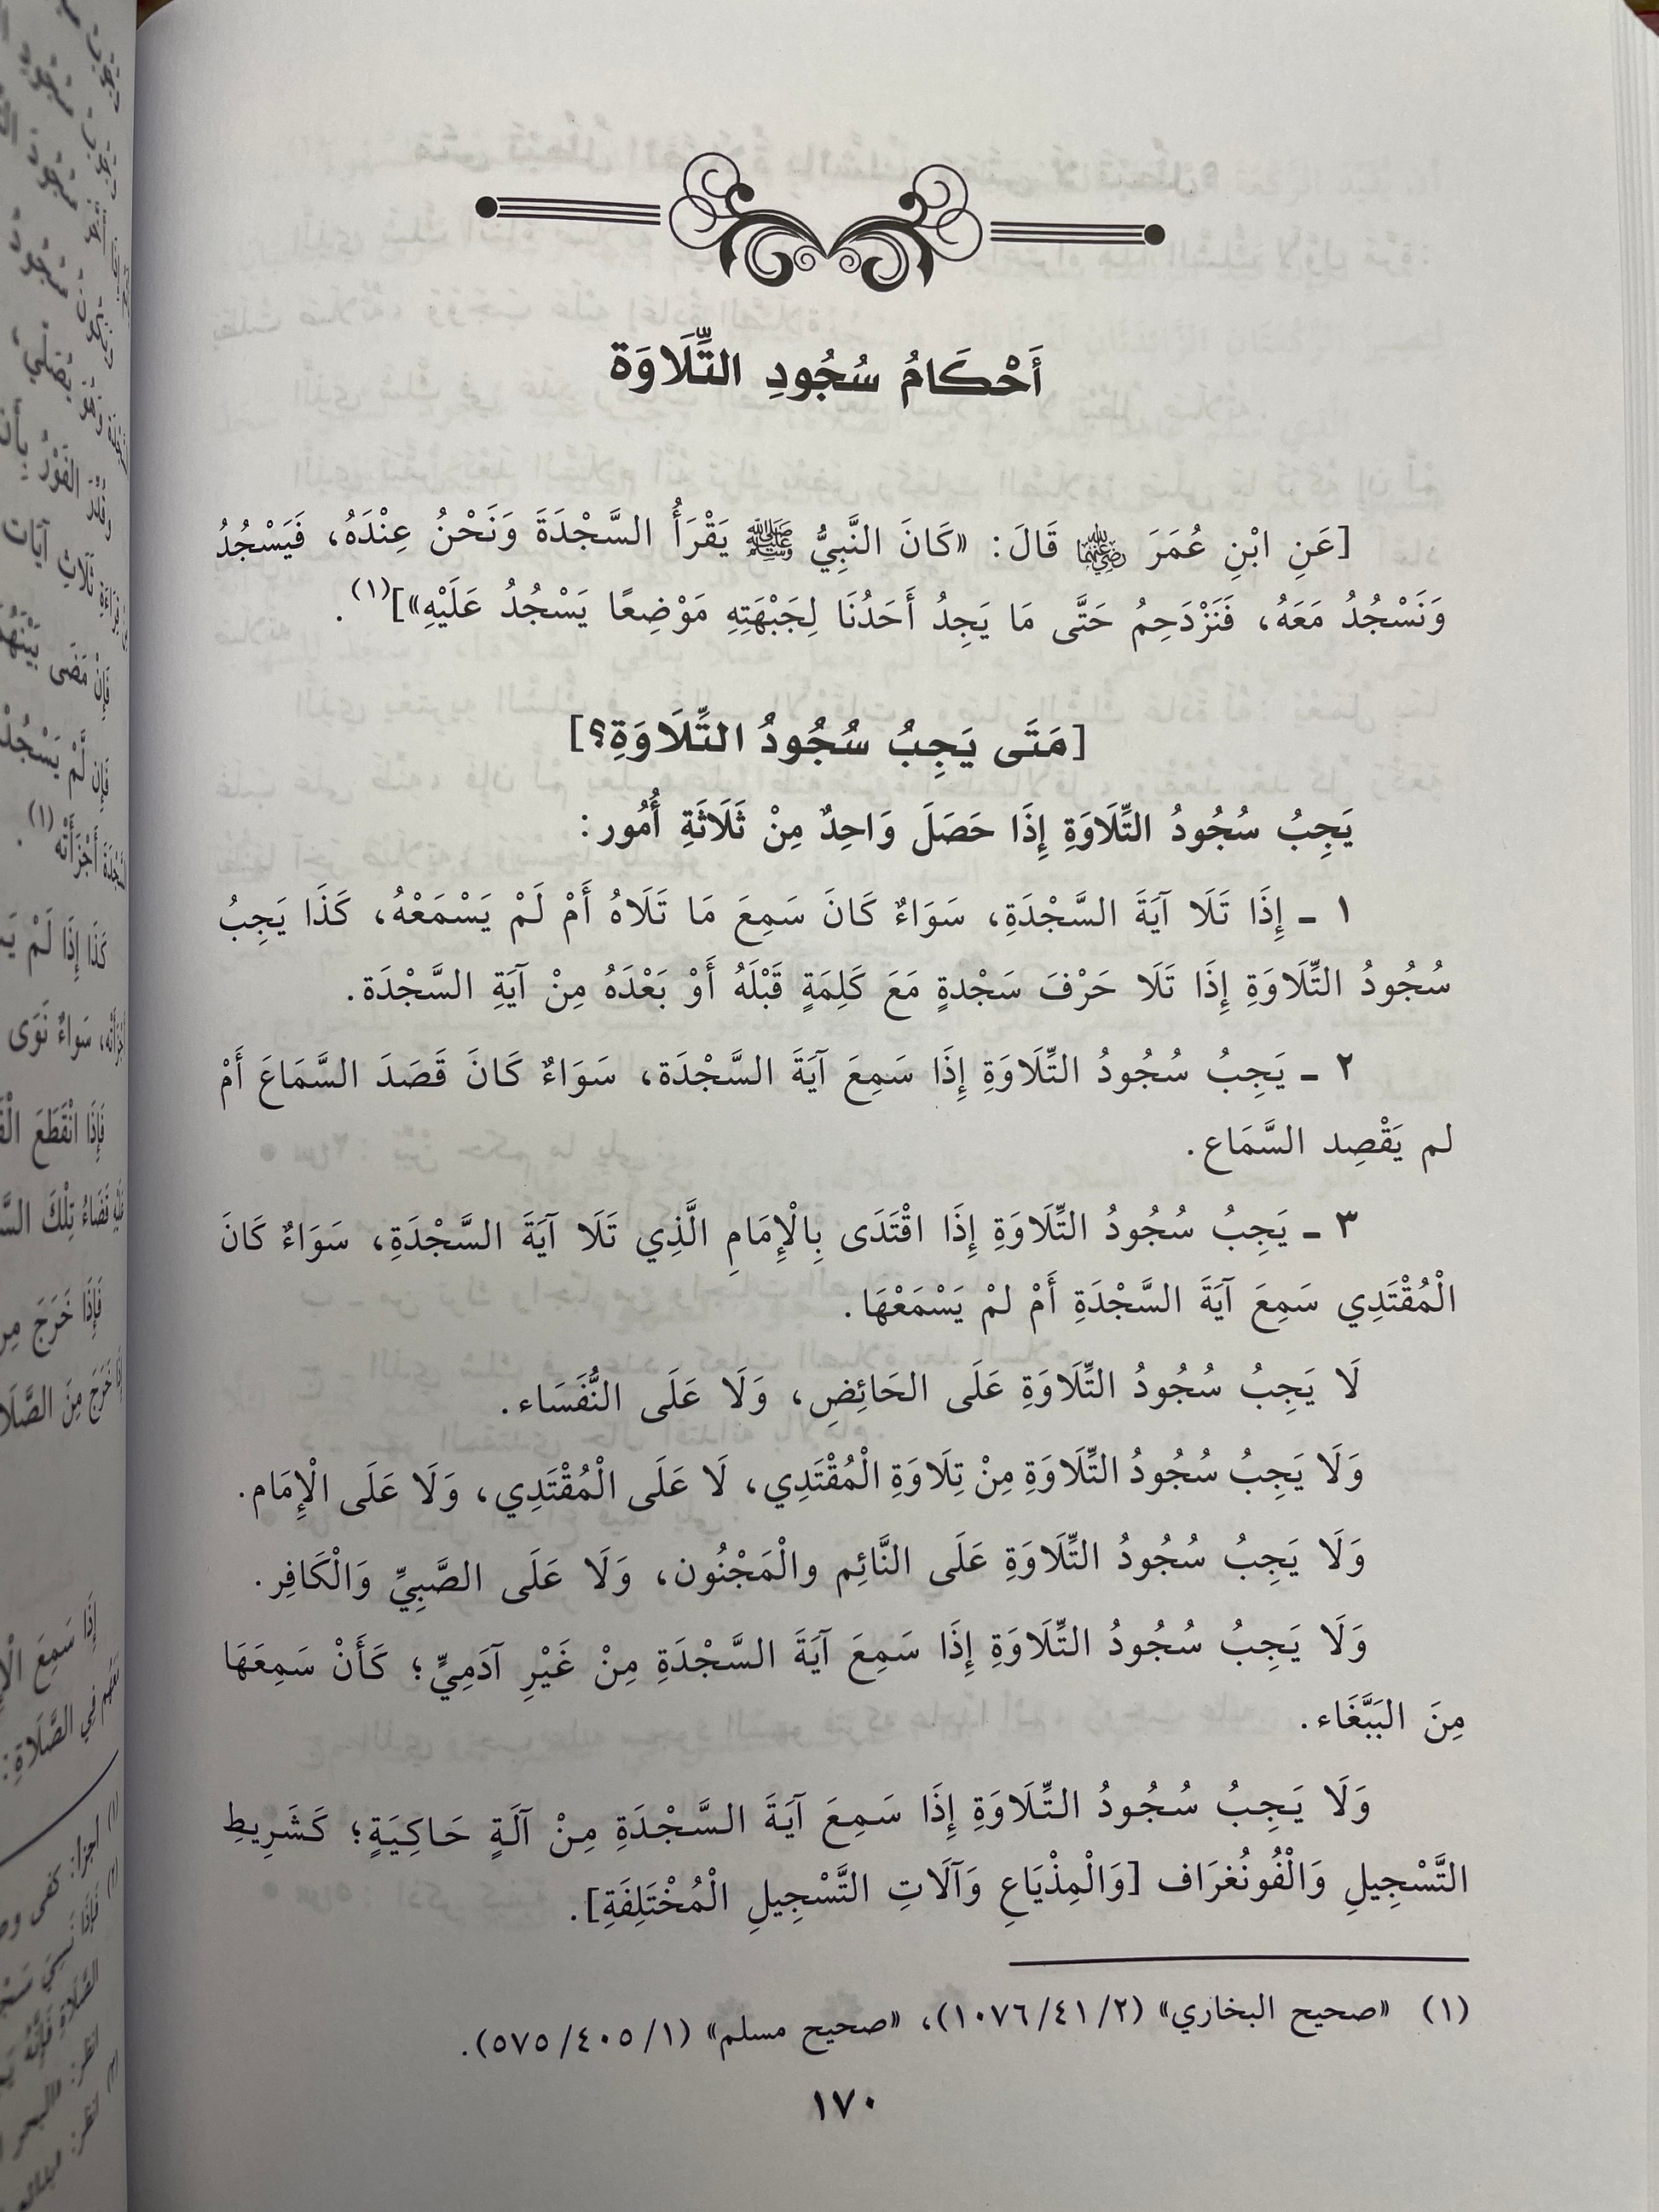 أَحْكَامُ سُجُودِ التِّلَاوَة
[عَنِ ابْنِ عُمَرَ رضي الله عنهما قَالَ: «كَانَ النَّبِيُّ ﷺ يَقْرَأُ السَّجْدَةَ وَنَحْنُ عِنْدَهُ، فَيَسْجُدُ
وَنَسْجُدُ مَعَهُ، فَنَزْدَحِمُ حَتَّى مَا يَجِدُ أَحَدُنَا لِجَبْهَتِهِ مَوْضِعًا يَسْجُدُ عَلَيْهِ»](١).
[مَتَى يَجِبُ سُجُودُ التِّلَاوَةِ؟]
يَجِبُ سُجُودُ التِّلَاوَةِ إِذَا حَصَلَ وَاحِدٌ مِنْ ثَلَاثَةِ أُمُور:
١ ـ إِذَا تَلَا آيَةَ السَّجْدَةِ، سَوَاءٌ كَانَ سَمِعَ مَا تَلَاهُ أَمْ لَمْ يَسْمَعْهُ، كَذَا يَجِبُ
سُجُودُ التِّلَاوَةِ إِذَا تَلَا حَرْفَ سَجْدةٍ مَعَ كَلِمَةٍ قَبْلَهُ أَوْ بَعْدَهُ مِنْ آيَةِ السَّجْدَة.
٢ ـ يَجِبُ سُجُودُ التِّلَاوَةِ إِذَا سَمِعَ آيَةَ السَّجْدَة، سَوَاءٌ كَانَ قَصَدَ السَّمَاعَ أَمْ
لم يَقْصِد السَّمَاع.
٣ ـ يَجِبُ سُجُودُ التِّلَاوَةِ إِذَا اقْتَدَى بِالْإِمَامِ الَّذِي تَلَا آيَةَ السَّجْدَةِ، سَوَاءٌ كَانَ
الْمُقْتَدِي سَمِعَ آيَةَ السَّجْدَةِ أَمْ لمْ يَسْمَعْهَا.
لَا يَجِبُ سُجُودُ التِّلَاوَةِ عَلَى الحَائِضِ، وَلَا عَلَى النُّفَسَاء.
وَلَا يَجِبُ سُجُودُ التِّلَاوَةِ مِنْ تِلَاوَةِ الْمُقْتَدِي، لَا عَلَى الْمُقْتَدِي، وَلَا عَلَى الْإِمَام.
وَلَا يَجِبُ سُجُودُ التِّلَاوَةِ عَلَى النَّائِم والْمَجْنُون، وَلَا عَلَى الصَّبِيِّ وَالْكَافِر.
وَلَا يَجِبُ سُجُودُ التِّلَاوَةِ إِذَا سَمِعَ آيَةَ السَّجْدَةِ مِنْ غَيْرِ آدَمِيٍّ؛ كَأَنْ سَمِعَهَا
مِنَ البَبَّغَاء.
وَلَا يَجِبُ سُجُودُ التِّلَاوَةِ إِذَا سَمِعَ آيَةَ السَّجْدَةِ مِنْ آلَةٍ حَاكِيَةٍ؛ كَشَرِيطِ
التَّسْجِيلِ وَالْفُونُغرَاف [وَالْمِذْيَاعِ وَآلَاتِ التَّسْجِيلِ الْمُخْتَلِفَةِ].
(١) «صحيح البخاري» (١٠٧٦/٤١/٢)، «صحيح مسلم» (٥٧٥/٤٠٥/١).
١٧٠